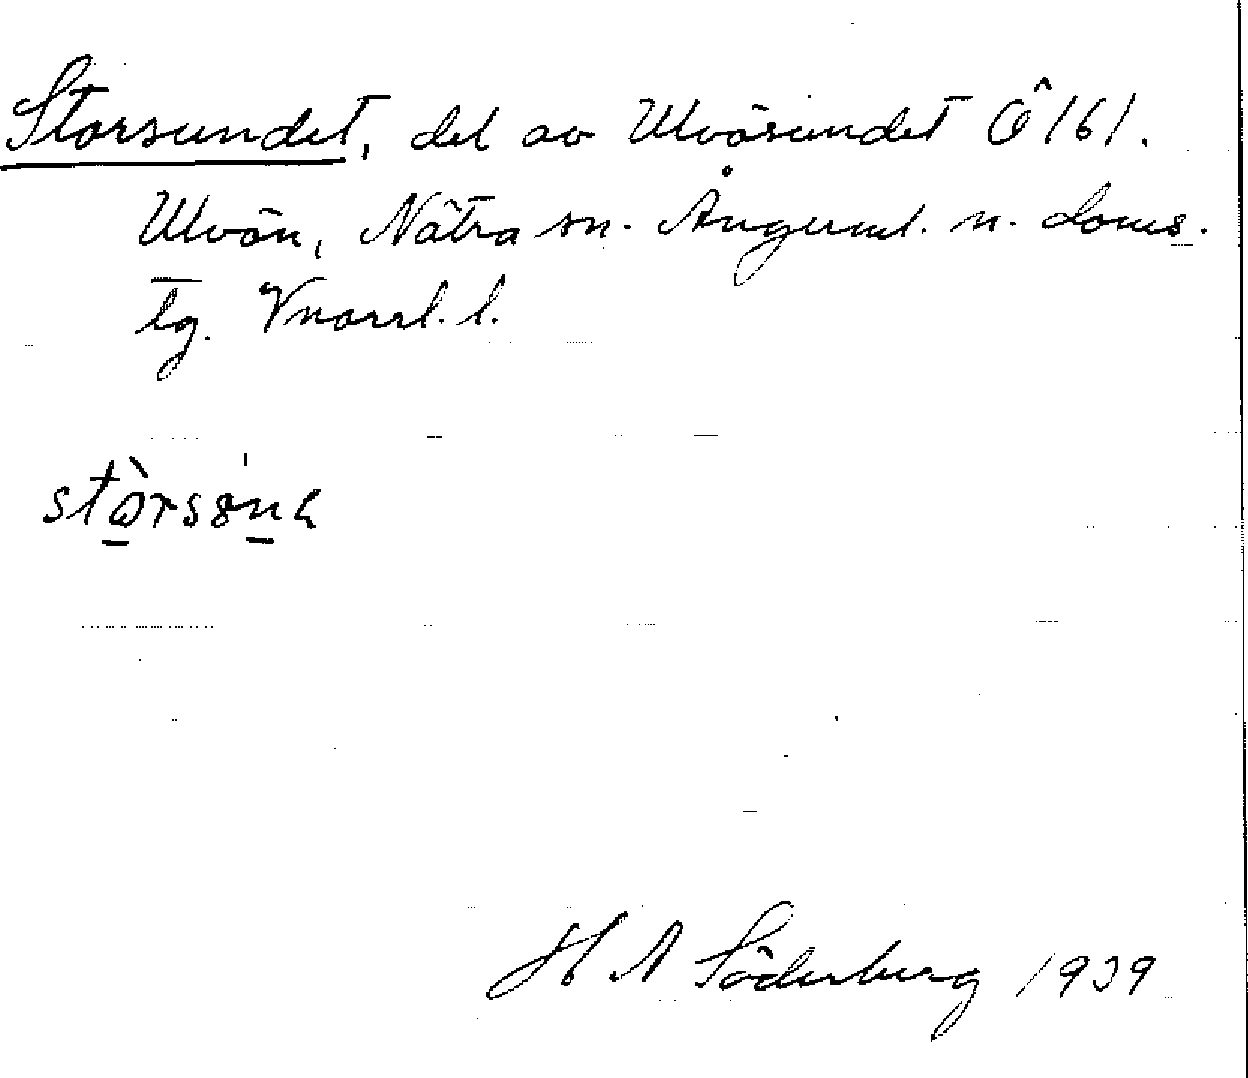 Storsundet, del av Ulvösundet Ö 161.
Ulvön, Nätra sn. Ångerml. n. doms.
tg. Vnorrl. l.
H A Söderberg 1939